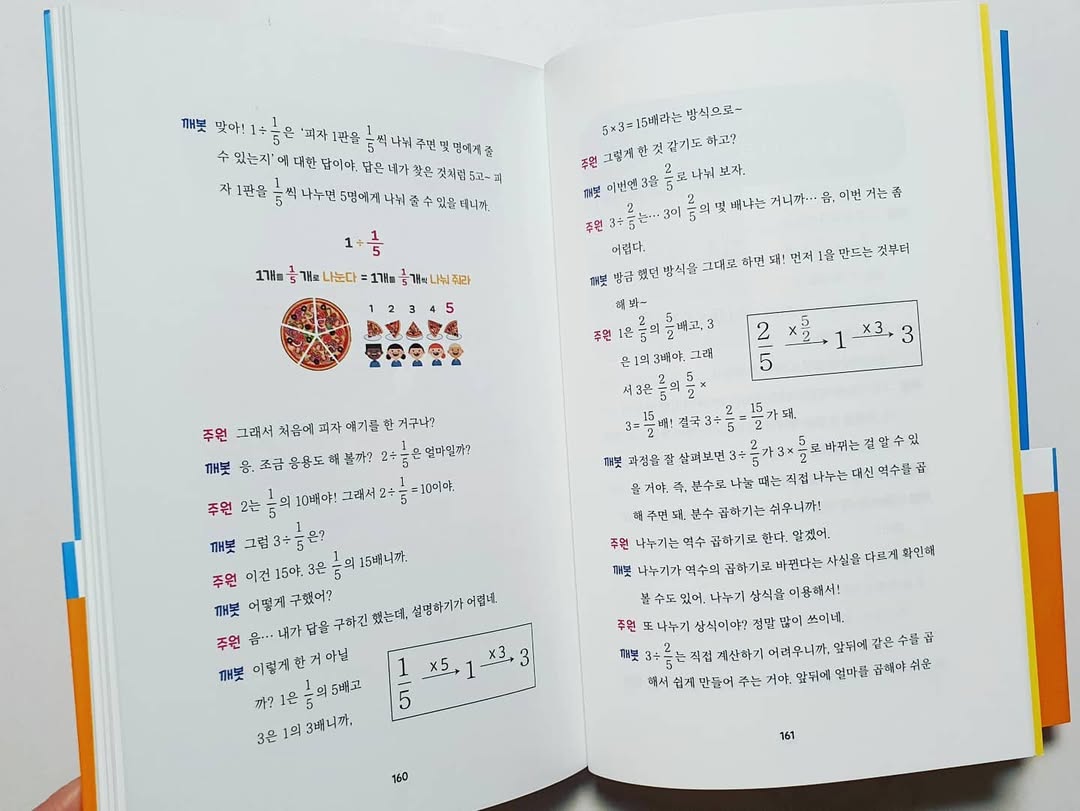 깨봇 맞아! 1÷1/5은 '피자 1판을 1/5씩 나눠 주면 몇 명에게 줄
수 있는지'에 대한 답이야. 답은 네가 찾은 것처럼 5고~ 피
자 1판을 1/5씩 나누면 5명에게 나눠 줄 수 있을 테니까.
1÷1/5
1개를 1/5개로 나눈다 = 1개를 1/5개씩 나눠 줘라
1 2 3 4 5
주원 그래서 처음에 피자 얘기를 한 거구나?
깨봇 응. 조금 응용도 해 볼까? 2÷1/5은 얼마일까?
주원 2는 1/5의 10배야! 그래서 2÷1/5=10이야.
깨봇 그럼 3÷1/5은?
주원 이건 15야. 3은 1/5의 15배니까.
깨봇 어떻게 구했어?
주원 음… 내가 답을 구하긴 했는데, 설명하기가 어렵네.
깨봇 이렇게 한 거 아닐
까? 1은 1/5의 5배고
3은 1의 3배니까,
1/5 ×5→ 1 ×3→ 3
160
5×3=15배라는 방식으로~
주원 그렇게 한 것 같기도 하고?
깨봇 이번엔 3을 2/5로 나눠 보자.
주원 3÷2/5는… 3이 2/5의 몇 배냐는 거니까… 음, 이번 거는 좀
어렵다.
깨봇 방금 했던 방식을 그대로 하면 돼! 먼저 1을 만드는 것부터
해 봐~
주원 1은 2/5의 5/2배고, 3
은 1의 3배야. 그래
서 3은 2/5의 5/2×
3=15/2배! 결국 3÷2/5=15/2가 돼.
2/5 ×5/2→ 1 ×3→ 3
깨봇 과정을 잘 살펴보면 3÷2/5가 3×5/2로 바뀌는 걸 알 수 있
을 거야. 즉, 분수로 나눌 때는 직접 나누는 대신 역수를 곱
해 주면 돼. 분수 곱하기는 쉬우니까!
주원 나누기는 역수 곱하기로 한다. 알겠어.
깨봇 나누기가 역수의 곱하기로 바뀐다는 사실을 다르게 확인해
볼 수도 있어. 나누기 상식을 이용해서!
주원 또 나누기 상식이야? 정말 많이 쓰이네.
깨봇 3÷2/5는 직접 계산하기 어려우니까, 앞뒤에 같은 수를 곱
해서 쉽게 만들어 주는 거야. 앞뒤에 얼마를 곱해야 쉬운
161